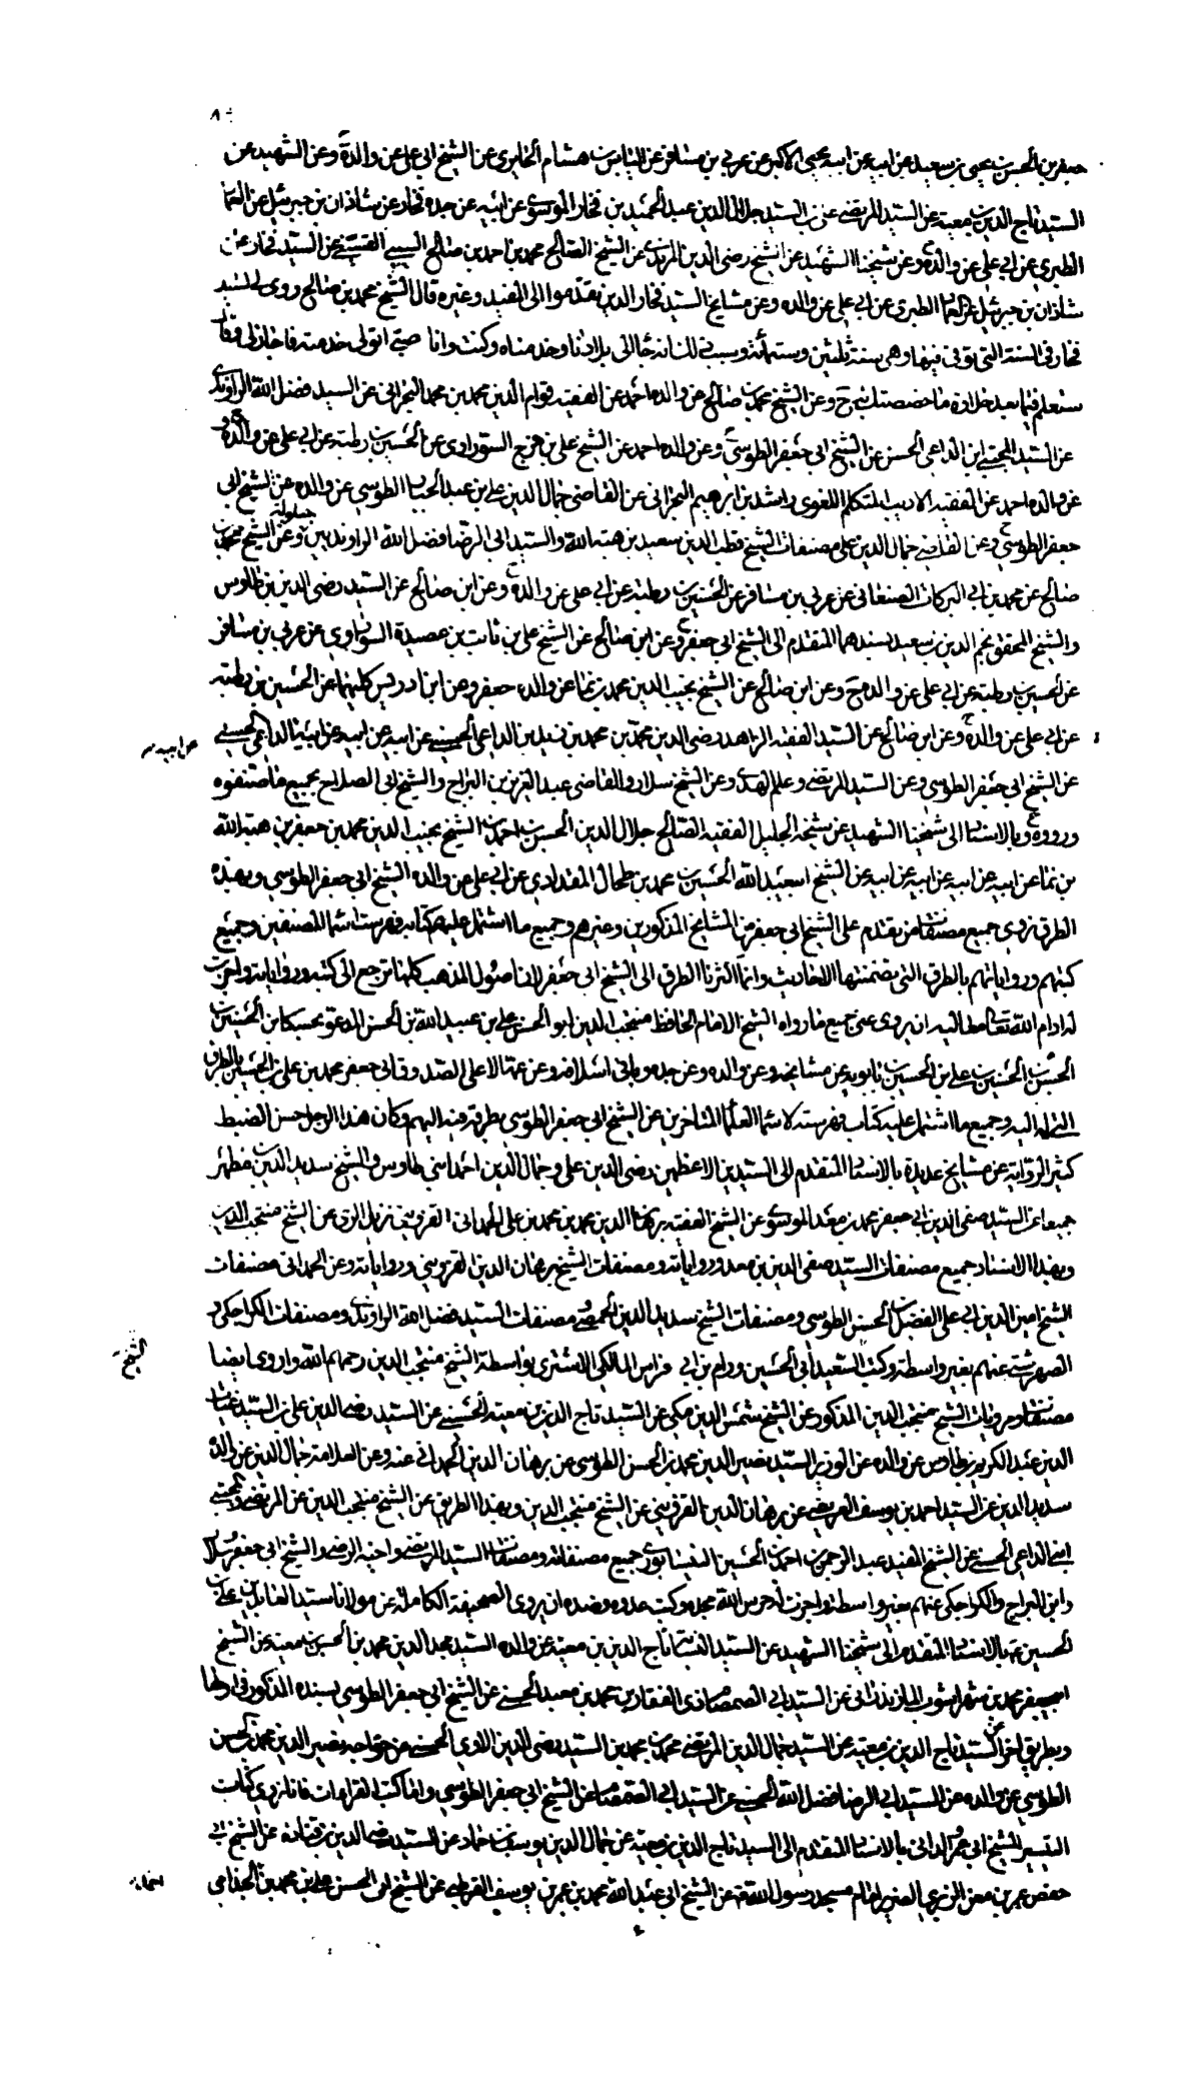 ٨٠
جعفر بن الحسن بن يحيى بن سعيد عن ابيه عن ابيه يحيى الاكبر عن عربي بن مسافر عن الياس بن هشام الحايري عن الشيخ ابي علي عن والده وعن الشهيد عن
السيد تاج الدين بن معية عن السيد المرتضى علي بن السيد جلال الدين عبد الحميد بن فخار الموسوي عن ابيه عن جده فخار عن شاذان بن جبرئيل عن العماد
الطبري عن ابي علي عن والده وعن شيخنا الشهيد عن الشيخ رضى الدين المزيدي عن الشيخ الصالح محمد بن احمد بن صالح السيبي القسيني عن السيد فخار عن
شاذان بن جبرئيل عن العماد الطبري عن ابي علي عن والده وعن مشايخ السيد فخار الذين تقدموا الى المفيد وغيره قال الشيخ محمد بن صالح روى لي السيد
فخار في السنة التي توفى فيها وهي سنة ثلثين وستمائة وسبب ذلك انه جاء الى بلادنا وخدمناه وكنت وانا صبي اتولى خدمته فاجاز لي وقال
ستعلم فيما بعد حلاوة ما خصصتك به ح وعن الشيخ محمد بن صالح عن والده احمد عن الفقيه قوام الدين محمد بن محمد البحراني عن السيد فضل الله الراوندي
عن السيد المجتبى ابن الداعي الحسني عن الشيخ ابي جعفر الطوسي وعن والده احمد عن الشيخ علي بن فرج السوراوي عن الحسين بن رطبة عن ابي علي عن والده و
عن والده احمد عن الفقيه الاديب المتكلم اللغوي راشد بن ابرهيم البحراني عن القاضي جمال الدين علي بن عبد الجبار الطوسي عن والده عن الشيخ ابي
جعفر الطوسي وعن القاضي جمال الدين علي مصنفات الشيخ قطب الدين سعيد بن هبة الله والسيد ابي الرضا فضل الله الراونديين وعن الشيخ محمد بن
صالح عن محمد بن ابي البركات الصنعاني عن عربي بن مسافر عن الحسين بن رطبة عن ابي علي عن والده وعن ابن صالح عن السيد رضى الدين بن طاوس
والشيخ المحقق نجم الدين بن سعيد بسندهما المتقدم الى الشيخ ابي جعفر وعن ابن صالح عن الشيخ علي بن ثابت بن عصيدة السوراوي عن عربي بن مسافر
عن الحسين بن رطبة عن ابي علي عن والده ح وعن ابن صالح عن الشيخ نجيب الدين محمد بن نما عن والده جعفر وعن ابن ادريس كليهما عن الحسين بن رطبة
عن ابي علي عن والده وعن ابن صالح عن السيد الفقيه الزاهد رضى الدين محمد بن محمد بن محمد بن زيد بن الداعي الحسيني عن ابيه عن ابيه عن ابيه عن ابيه الداعي الحسيني
عن ابيه
عن الشيخ ابي جعفر الطوسي وعن السيد المرتضى وعلم الهدى وعن الشيخ سلار والقاضي عبد العزيز بن البراج والشيخ ابي الصلاح بجميع ما صنفوه
ورووه وبالاسناد الى شيخنا الشهيد عن شيخه الجليل الفقيه الصالح جلال الدين الحسن بن احمد بن الشيخ نجيب الدين محمد بن جعفر بن هبة الله
بن نما عن ابيه عن ابيه عن ابيه عن ابيه عن الشيخ ابي عبد الله الحسين بن محمد بن طحال المقدادي عن ابي علي عن والده الشيخ ابي جعفر الطوسي وبهذه
الطرق نروي جميع مصنفات من تقدم على الشيخ ابي جعفر من المشايخ المذكورين وغيرهم وجميع ما اشتمل عليه كتابه فهرست اسماء المصنفين وجميع
كتبهم ورواياتهم بالطرق التي تضمنتها الاحاديث وانما اكثرنا الطرق الى الشيخ ابي جعفر لان اصول المذهب كلها ترجع الى كتبه ورواياته واجزت
له ادام الله تعالى معاليه ان يروي عني جميع ما رواه الشيخ الامام الحافظ منتجب الدين ابو الحسن علي بن عبيد الله بن الحسن المدعو حسكا بن الحسين بن
الحسن بن الحسين بن علي بن الحسين بن بابويه عن مشايخه وعن والده وعن جده وباقي اسلافه وعن عمه الاعلى الصدوق ابي جعفر محمد بن علي بن الحسين بالطرق
التي له اليه وجميع ما اشتمل عليه كتاب فهرسته لاسماء العلماء المتاخرين عن الشيخ ابي جعفر الطوسي بطرقه فيه اليهم وكان هذا الرجل حسن الضبط
كثير الرواية عن مشايخ عديدة بالاسناد المتقدم الى السيدين الاعظمين رضى الدين علي وجمال الدين احمد ابني طاوس والشيخ سديد الدين بن مطهر
جميعا عن السيد صفي الدين ابي جعفر محمد بن معد الموسوي عن الشيخ الفقيه برهان الدين محمد بن محمد بن علي الحمداني القزويني نزيل الري عن الشيخ منتجب الدين
وبهذا الاسناد جميع مصنفات السيد صفي الدين بن معد ورواياته ومصنفات الشيخ برهان الدين القزويني ورواياته وعن الحمداني مصنفات
الشيخ امين الدين ابي علي الفضل بن الحسن الطوسي ومصنفات الشيخ سديد الدين الحمصي ومصنفات السيد فضل الله الراوندي ومصنفات الكراجكي و
الشيخ
الصهرشتي عنهم بغير واسطة وكتب السعيد ابي الحسين ورام بن ابي فراس المالكي الاشتري بواسطة الشيخ منتجب الدين رحمهم الله واروي ايضا
مصنفات ومرويات الشيخ منتجب الدين المذكور عن الشيخ شمس الدين مكي عن السيد تاج الدين بن معية الحسني عن السيد رضى الدين علي بن السيد غياث
الدين عبد الكريم بن طاوس عن والده عن الوزير السعيد نصير الدين محمد بن الحسن الطوسي عن برهان الدين الحمداني عنه وعن العلامة جمال الدين عن والده
سديد الدين عن السيد احمد بن يوسف العريضي عن برهان الدين القزويني عن الشيخ منتجب الدين وبهذا الطريق عن الشيخ منتجب الدين عن المرتضى والمجتبى
ابني الداعي الحسني عن الشيخ المفيد عبد الرحمن بن احمد بن الحسين النيسابوري جميع مصنفاته ومصنفات السيد المرتضى واخيه الرضي والشيخ ابي جعفر وسلار
وابن البراج والكراجكي عنهم بغير واسطة واجزت له حرس الله مجده وكبت عدوه وضده ان يروي الصحيفة الكاملة عن مولانا سيد العابدين علي بن
الحسين ع بالاسناد المتقدم الى شيخنا الشهيد عن السيد النسابة تاج الدين بن معية عن والده السيد مجد الدين محمد بن الحسن بن معية عن الشيخ
ابي جعفر محمد بن شهراشوب المازندراني عن السيد ابي الصمصام ذي الفقار بن محمد بن معبد الحسني عن الشيخ ابي جعفر الطوسي بسنده المذكور في اولها
وبطريق اخر عن السيد تاج الدين بن معية عن السيد كمال الدين المرتضى محمد بن محمد بن السيد رضى الدين الاوي الحسيني عن خواجه نصير الدين محمد بن الحسن
الطوسي عن والده عن السيد ابي الرضا فضل الله الحسيني عن السيد ابي الصمصام عن الشيخ ابي جعفر الطوسي واما كتب القراءات فانا نروي كتاب
التيسير للشيخ ابي عمرو الداني بالاسناد المتقدم الى السيد تاج الدين بن معية عن جمال الدين يوسف بن حماد عن السيد رضى الدين بن قتادة عن الشيخ ابي
حفص عمر بن معن الزبري الضرير امام مسجد رسول الله ص عن الشيخ ابي عبد الله محمد بن عمر بن يوسف القرطبي عن الشيخ ابي الحسن علي بن محمد بن احمد الجذامي